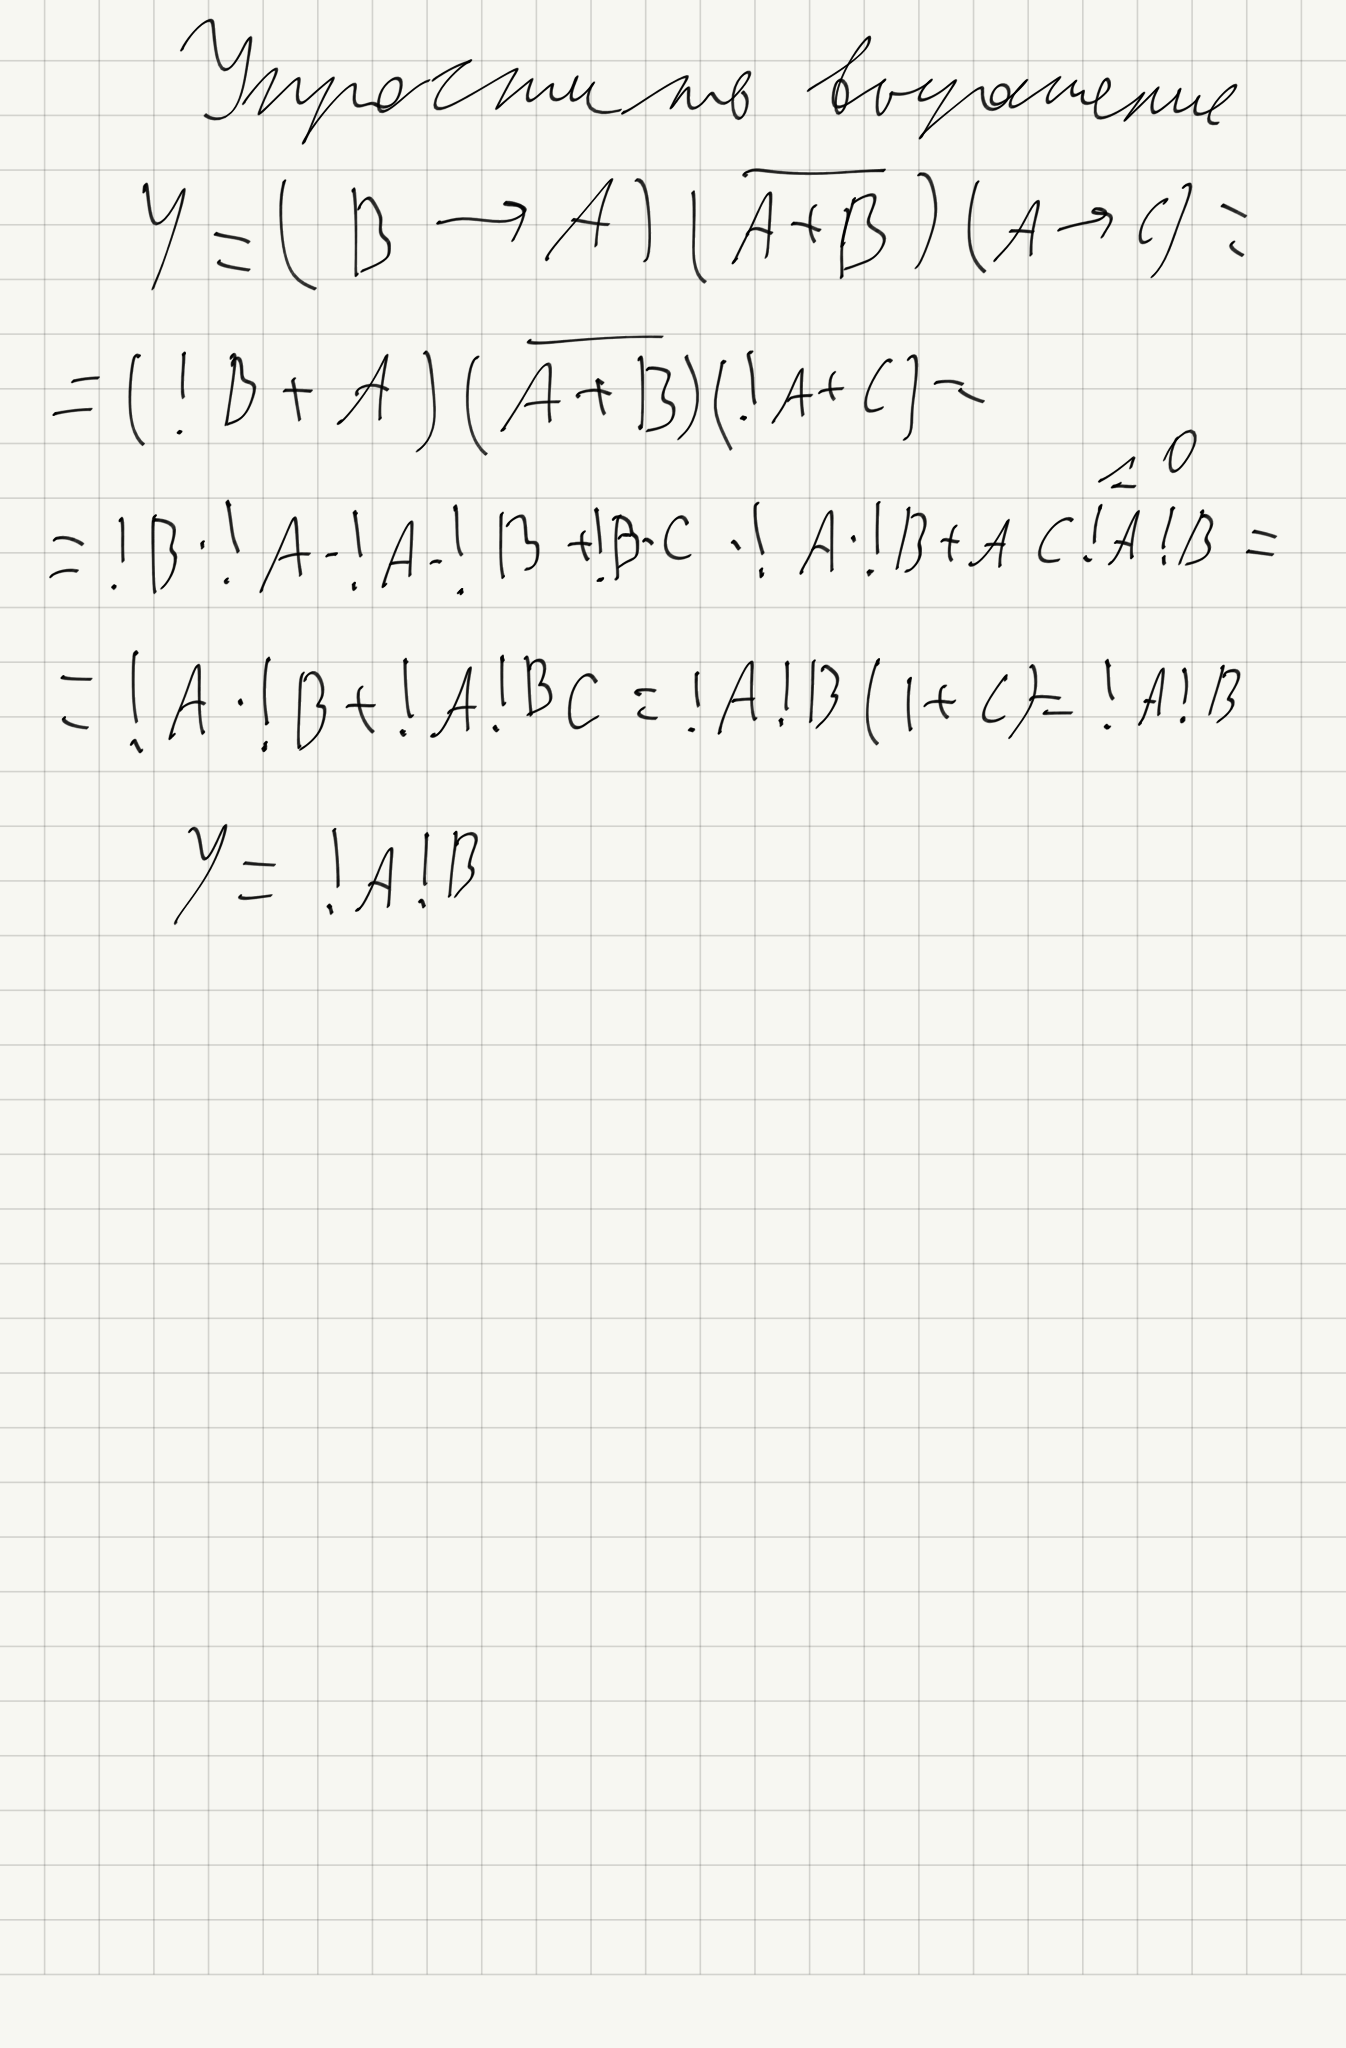 Упростить выражение
Y = (B → A) (\overline{A + B}) (A → C) =
= (!B + A) (\overline{A + B}) (!A + C) =
= !B · !A · !A · !B + !B · C · !A · !B + A C !A !B = 0 =
= !A · !B + !A !B C = !A !B (1 + C) = !A !B
Y = !A !B